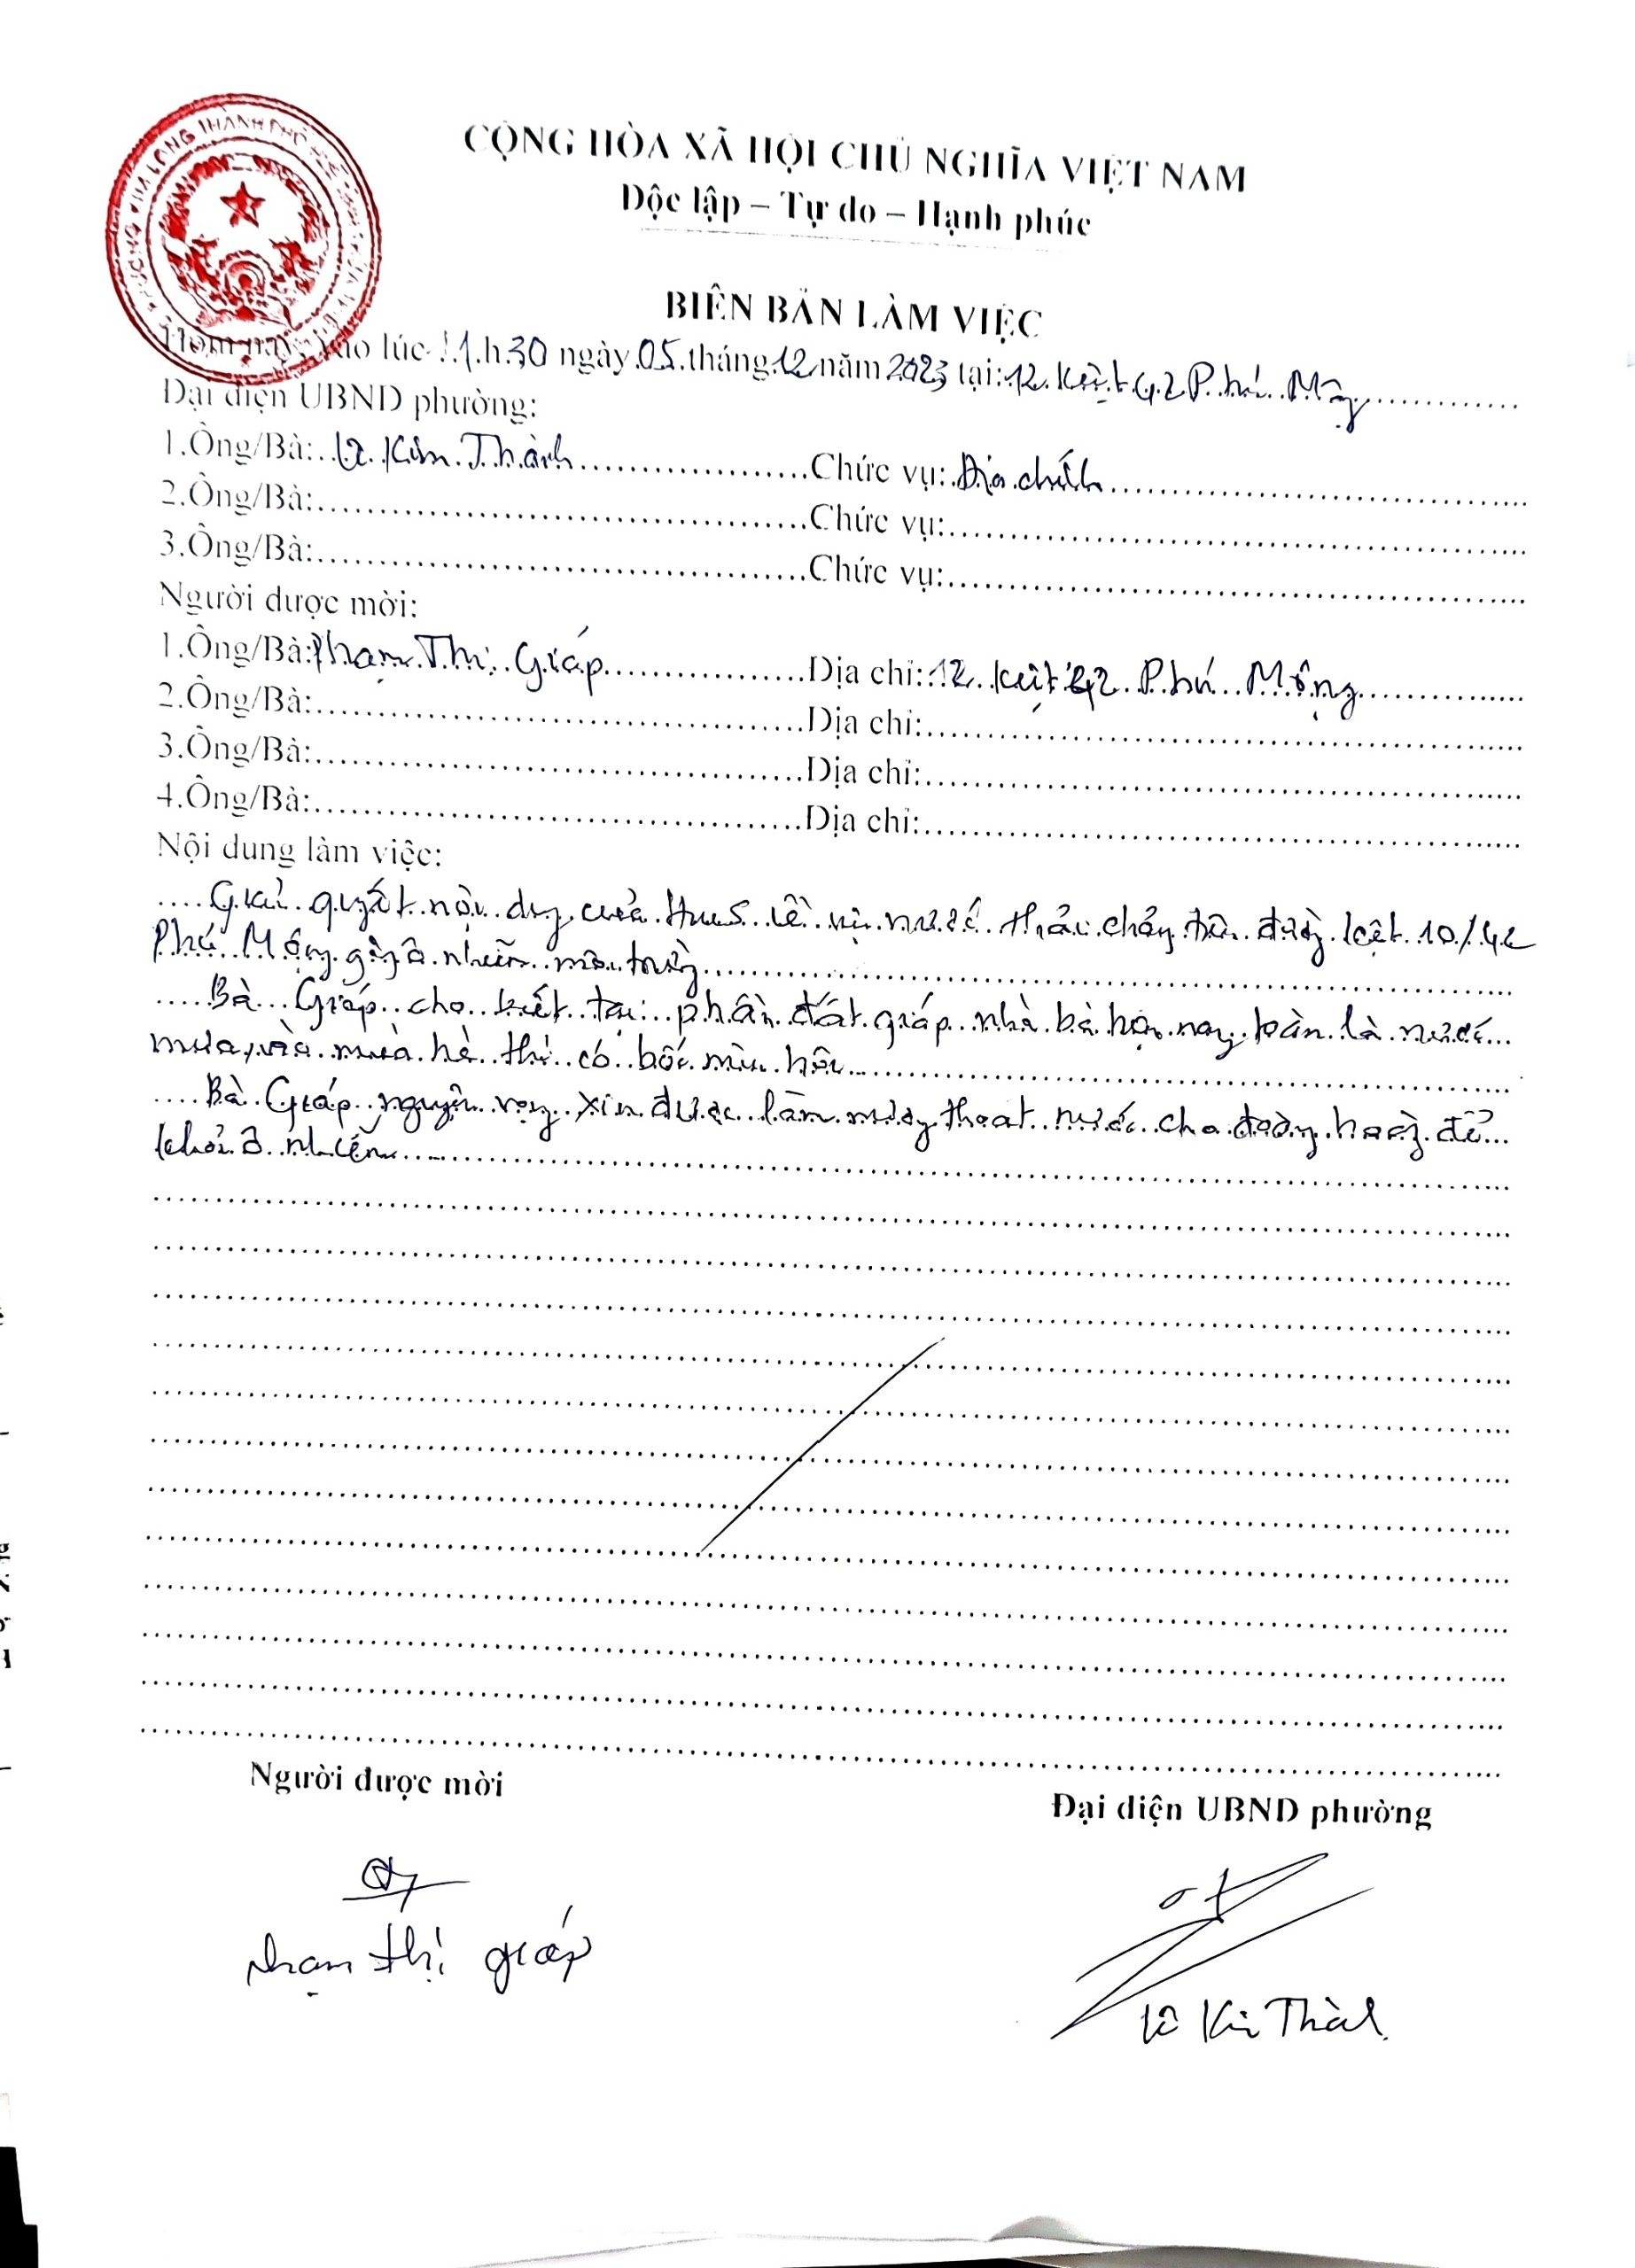 CỘNG HÒA XÃ HỘI CHỦ NGHĨA VIỆT NAM
Độc lập – Tự do – Hạnh phúc
BIÊN BẢN LÀM VIỆC
Hôm nay, vào lúc 11.h.30 ngày 05 tháng 12 năm 2023 tại: 12 Kiệt 42 Phú Mộng
Đại diện UBND phường:
1.Ông/Bà: Lê Kim Thành Chức vụ: Địa chính
2.Ông/Bà: Chức vụ:
3.Ông/Bà: Chức vụ:
Người được mời:
1.Ông/Bà: Phạm Thị Giáp Địa chỉ: 12 Kiệt 42 Phú Mộng
2.Ông/Bà: Địa chỉ:
3.Ông/Bà: Địa chỉ:
4.Ông/Bà: Địa chỉ:
Nội dung làm việc:
Giải quyết nội dung của HueS về việc nước thải chảy trên đường kiệt 10/42
Phú Mộng gây ô nhiễm môi trường
Bà Giáp cho biết tại phần đất giáp nhà bà hiện nay toàn là nước
mưa, vào mùa hè thì có bốc mùi hôi
Bà Giáp nguyện vọng xin được làm mương thoát nước cho đường hoàng để
khỏi ô nhiễm
Người được mời
Đại diện UBND phường
Phạm thị giáp
Lê Kim Thành